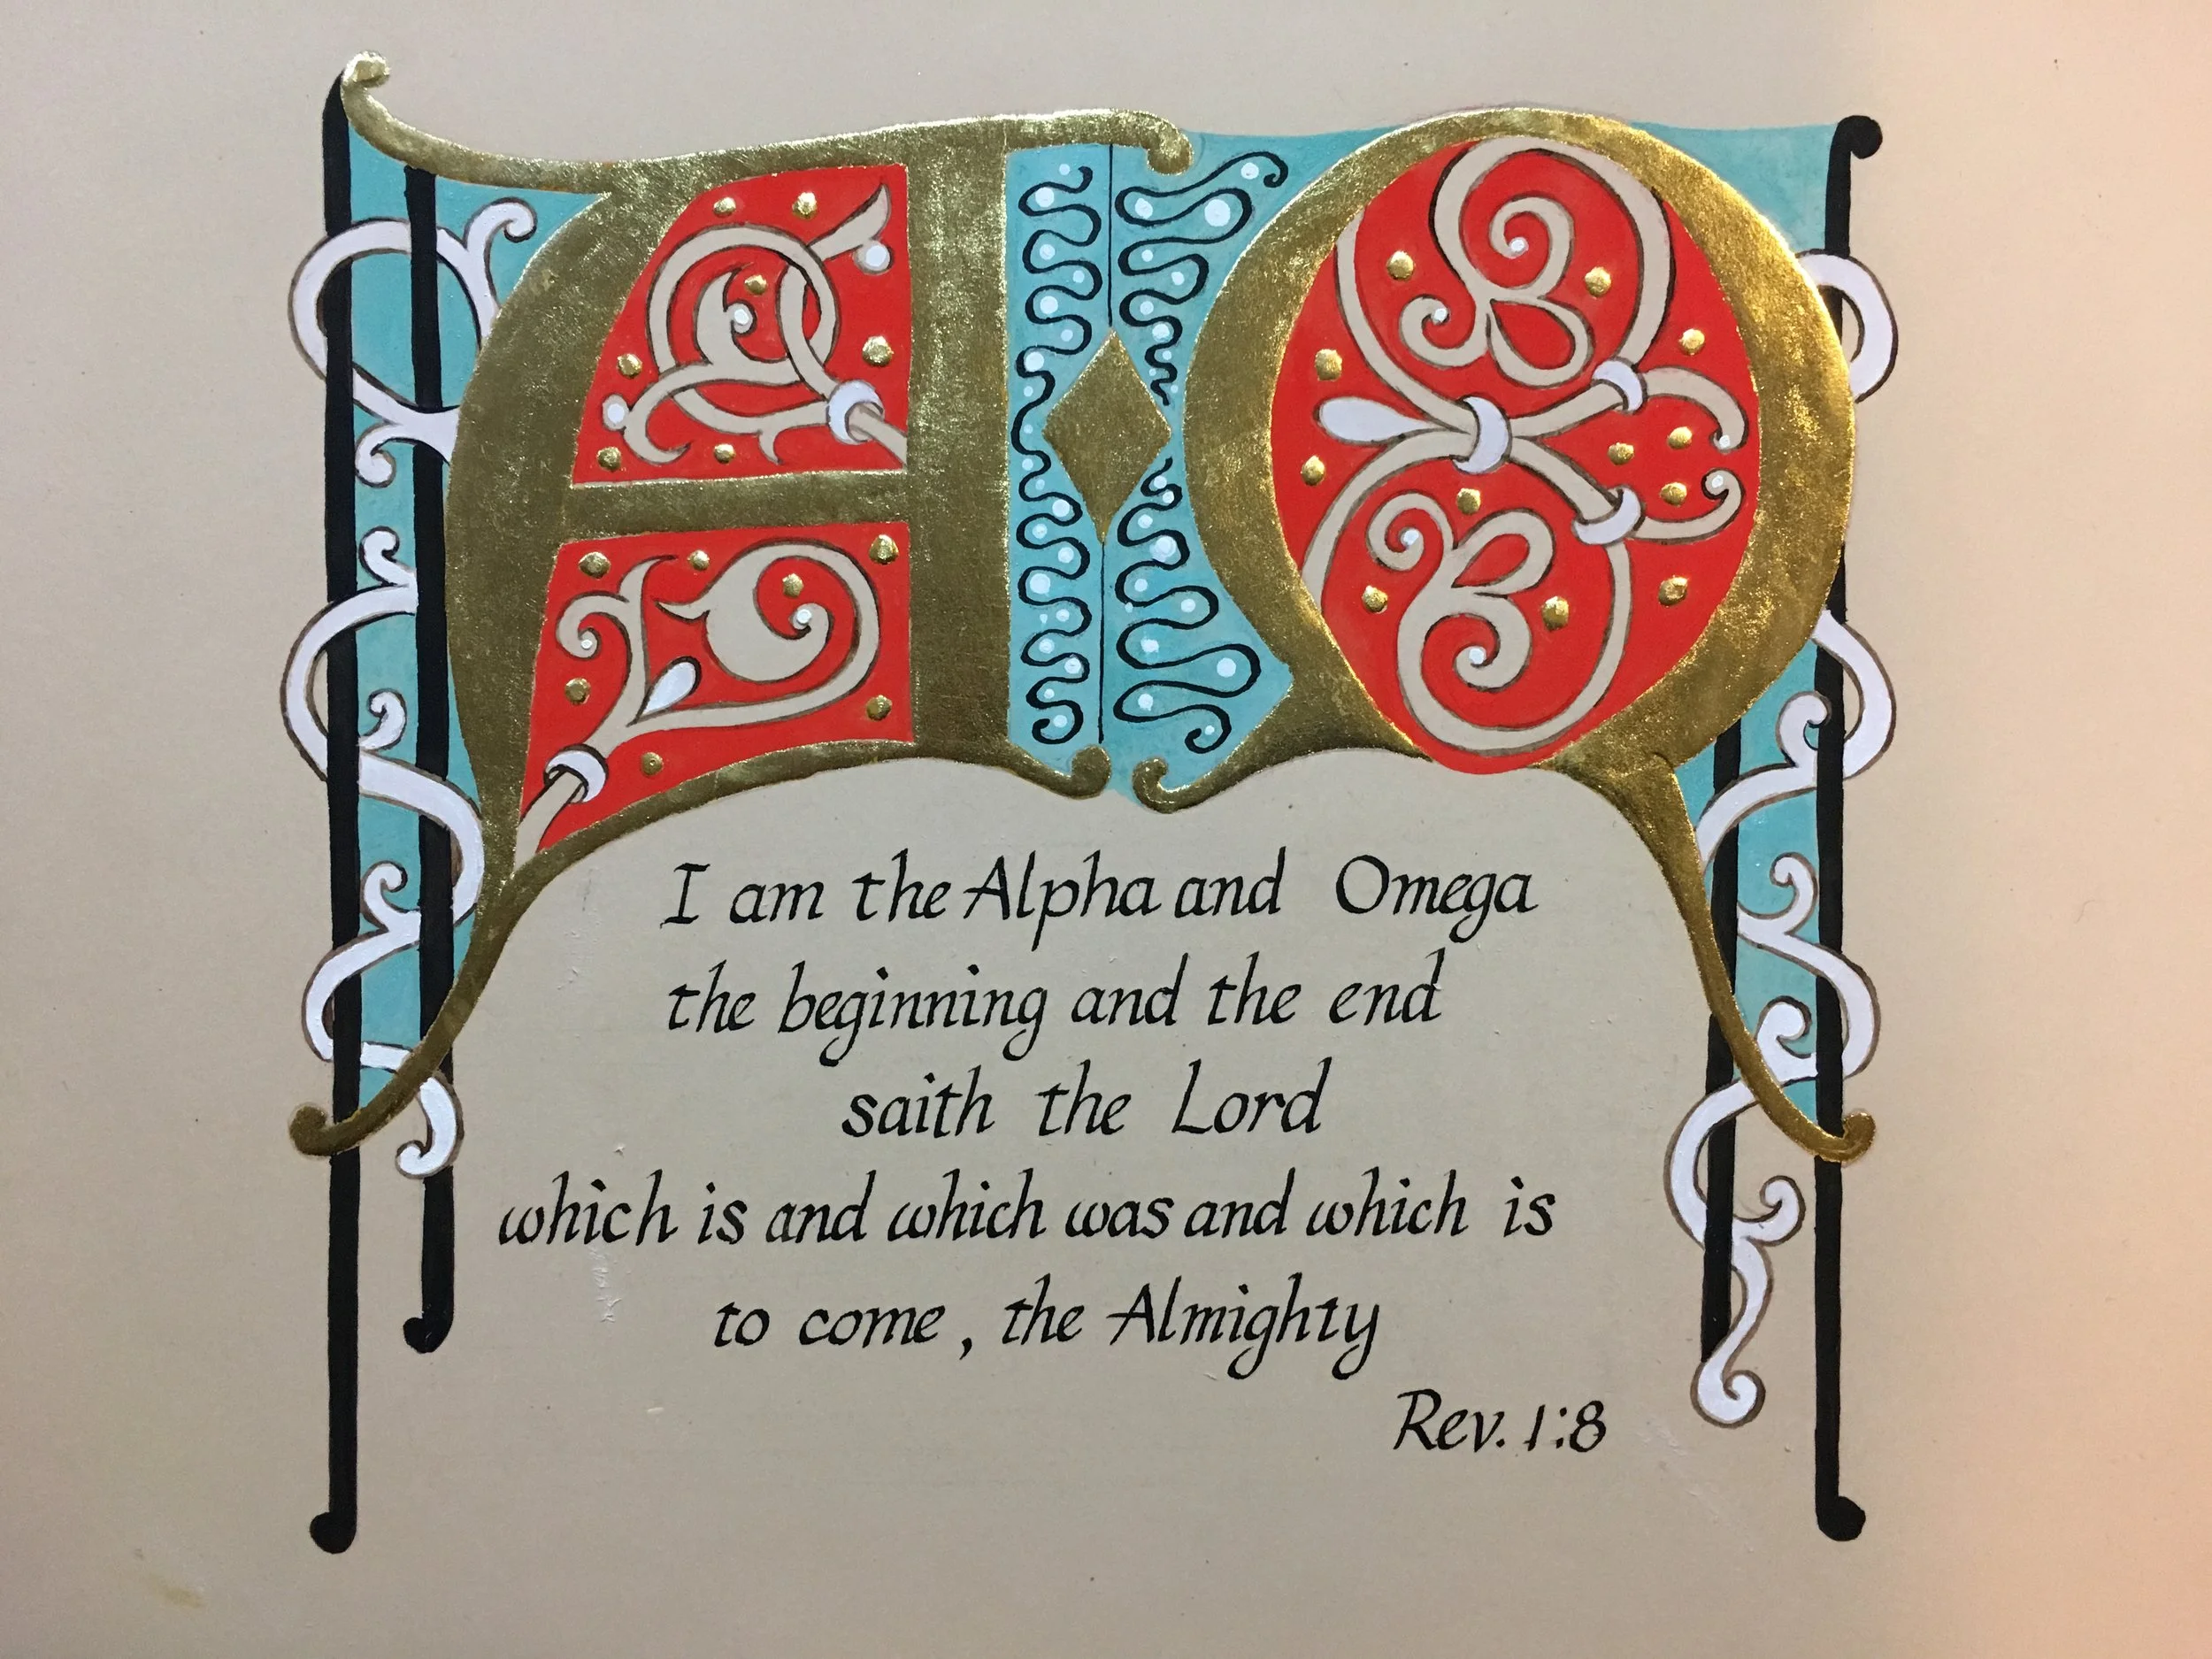 A Ω
I am the Alpha and Omega
the beginning and the end
saith the Lord
which is and which was and which is
to come, the Almighty
Rev. 1:8